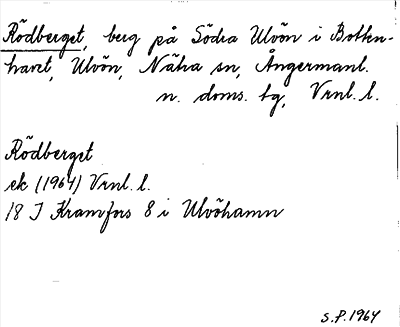 Rödberget, berg på Södra Ulvön i Botten-
havet, Ulvön, Nätra sn, Ångermanl.
n. doms. tg, Vrnl. l.
Rödberget
ek (1964) Vrnl. l.
18 J Kramfors 8 i Ulvöhamn
S.P. 1964